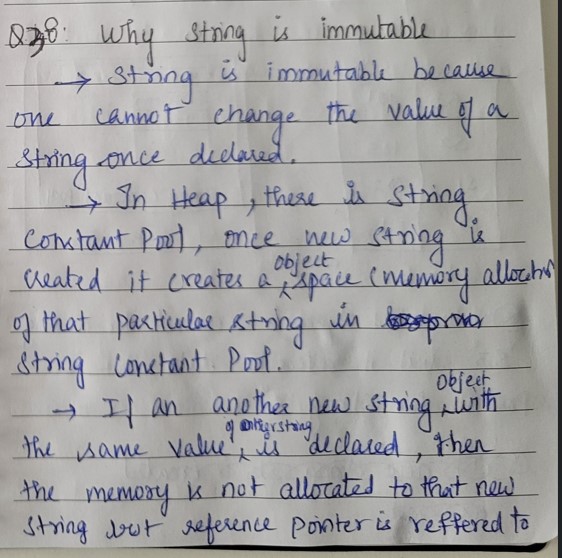 Q38: Why string is immutable
→ String is immutable because
one cannot change the value of a
string once declared.
→ In Heap, there is string
constant Pool, once new string is
created it creates a object space (memory allocation
of that particular string in
string constant Pool.
→ If an another new string object with
the same value of string is declared, then
the memory is not allocated to that new
string but reference pointer is reffered to